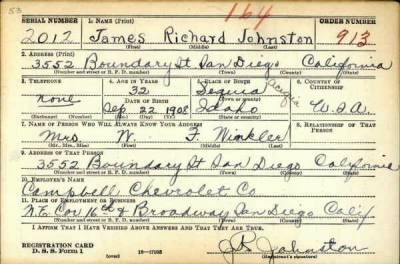 53
164
SERIAL NUMBER 1. NAME (Print) ORDER NUMBER
2012 James Richard Johnston 913
(First) (Middle) (Last)
2. ADDRESS (Print)
3552 Boundary St San Diego California
(Number and street or R. F. D. number) (Town) (County) (State)
3. TELEPHONE 4. AGE IN YEARS 5. PLACE OF BIRTH 6. COUNTRY OF CITIZENSHIP
None 32
DATE OF BIRTH
Sep 22 1908 Idaho U.S.A.
(Exchange) (Number) (Mo.) (Day) (Yr.) (State or country)
7. NAME OF PERSON WHO WILL ALWAYS KNOW YOUR ADDRESS 8. RELATIONSHIP OF THAT PERSON
Mrs. W. F. Winkler
(Mr., Mrs., Miss) (First) (Middle) (Last)
9. ADDRESS OF THAT PERSON
3552 Boundary St San Diego California
(Number and street or R. F. D. number) (Town) (County) (State)
10. EMPLOYER'S NAME
Campbell Chevrolet Co
11. PLACE OF EMPLOYMENT OR BUSINESS
N.E. Cor 16th & Broadway San Diego Calif
(Number and street or R. F. D. number) (Town) (County) (State)
I AFFIRM THAT I HAVE VERIFIED ABOVE ANSWERS AND THAT THEY ARE TRUE.
REGISTRATION CARD
D. S. S. FORM 1 (over) 16-17105
J R Johnston
(Registrant's signature)